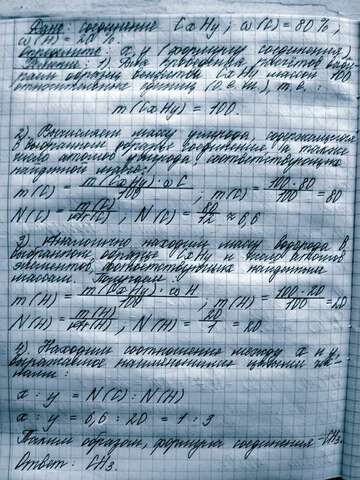 Дано: соединение CxHy; ω(C) = 80%,
ω(H) = 20%.
Определите: x, y (формулу соединения)
Решение: 1) Для проведения расчётов выбе-
рем образец вещества CxHy массой 100
относительных единиц (о.е.м), т.е.:
m(CxHy) = 100.
2) Вычисляем массу углерода, содержащегося
в выбранном образце соединения, а также
число атомов углерода, соответствующее
найденной массе:
m(C) = m(CxHy)·ωC / 100, m(C) = 100·80 / 100 = 80
N(C) = m(C) / Ar(C), N(C) = 80 / 12 ≈ 6,6
3) Аналогично находим массу водорода в
выбранном образце CxHy и число атомов
элементов, соответствующих найденным
массам. Получаем:
m(H) = m(CxHy)·ωH / 100, m(H) = 100·20 / 100 = 20
N(H) = m(H) / Ar(H), N(H) = 20 / 1 = 20.
4) Находим соотношение между x и y,
выраженное наименьшими целыми чис-
лами:
x : y = N(C) : N(H)
x : y = 6,6 : 20 = 1 : 3
Таким образом, формула соединения - CH3.
Ответ: CH3.